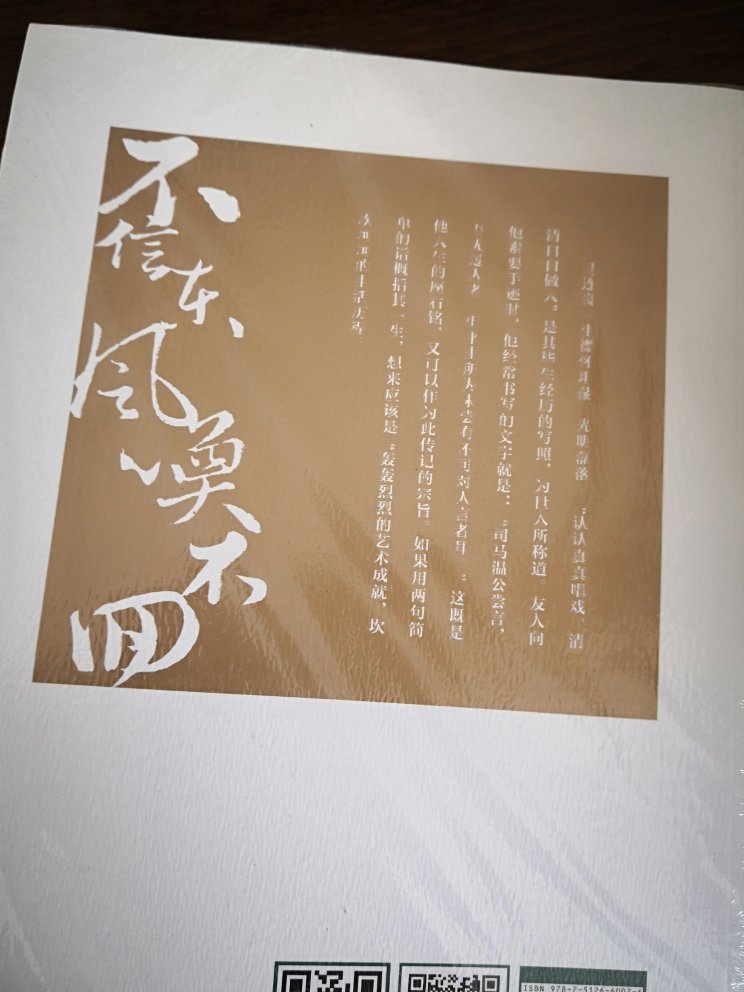 一生襟怀坦荡、光明磊落。“认认真真唱戏、清
清白白做人”是其毕生经历的写照，为世人所称道。友人向
他索要手迹时，他经常书写的文字就是：“司马温公尝言，
吾无过人者，生平所为未尝有不可对人言者耳。”这既是
他人生的座右铭，又可以作为此传记的宗旨。如果用两句简
单的话概括其一生，想来应该是“轰轰烈烈的艺术成就，坎
的生活历程
不信东风唤不回
ISBN 978-7-5126-6007-